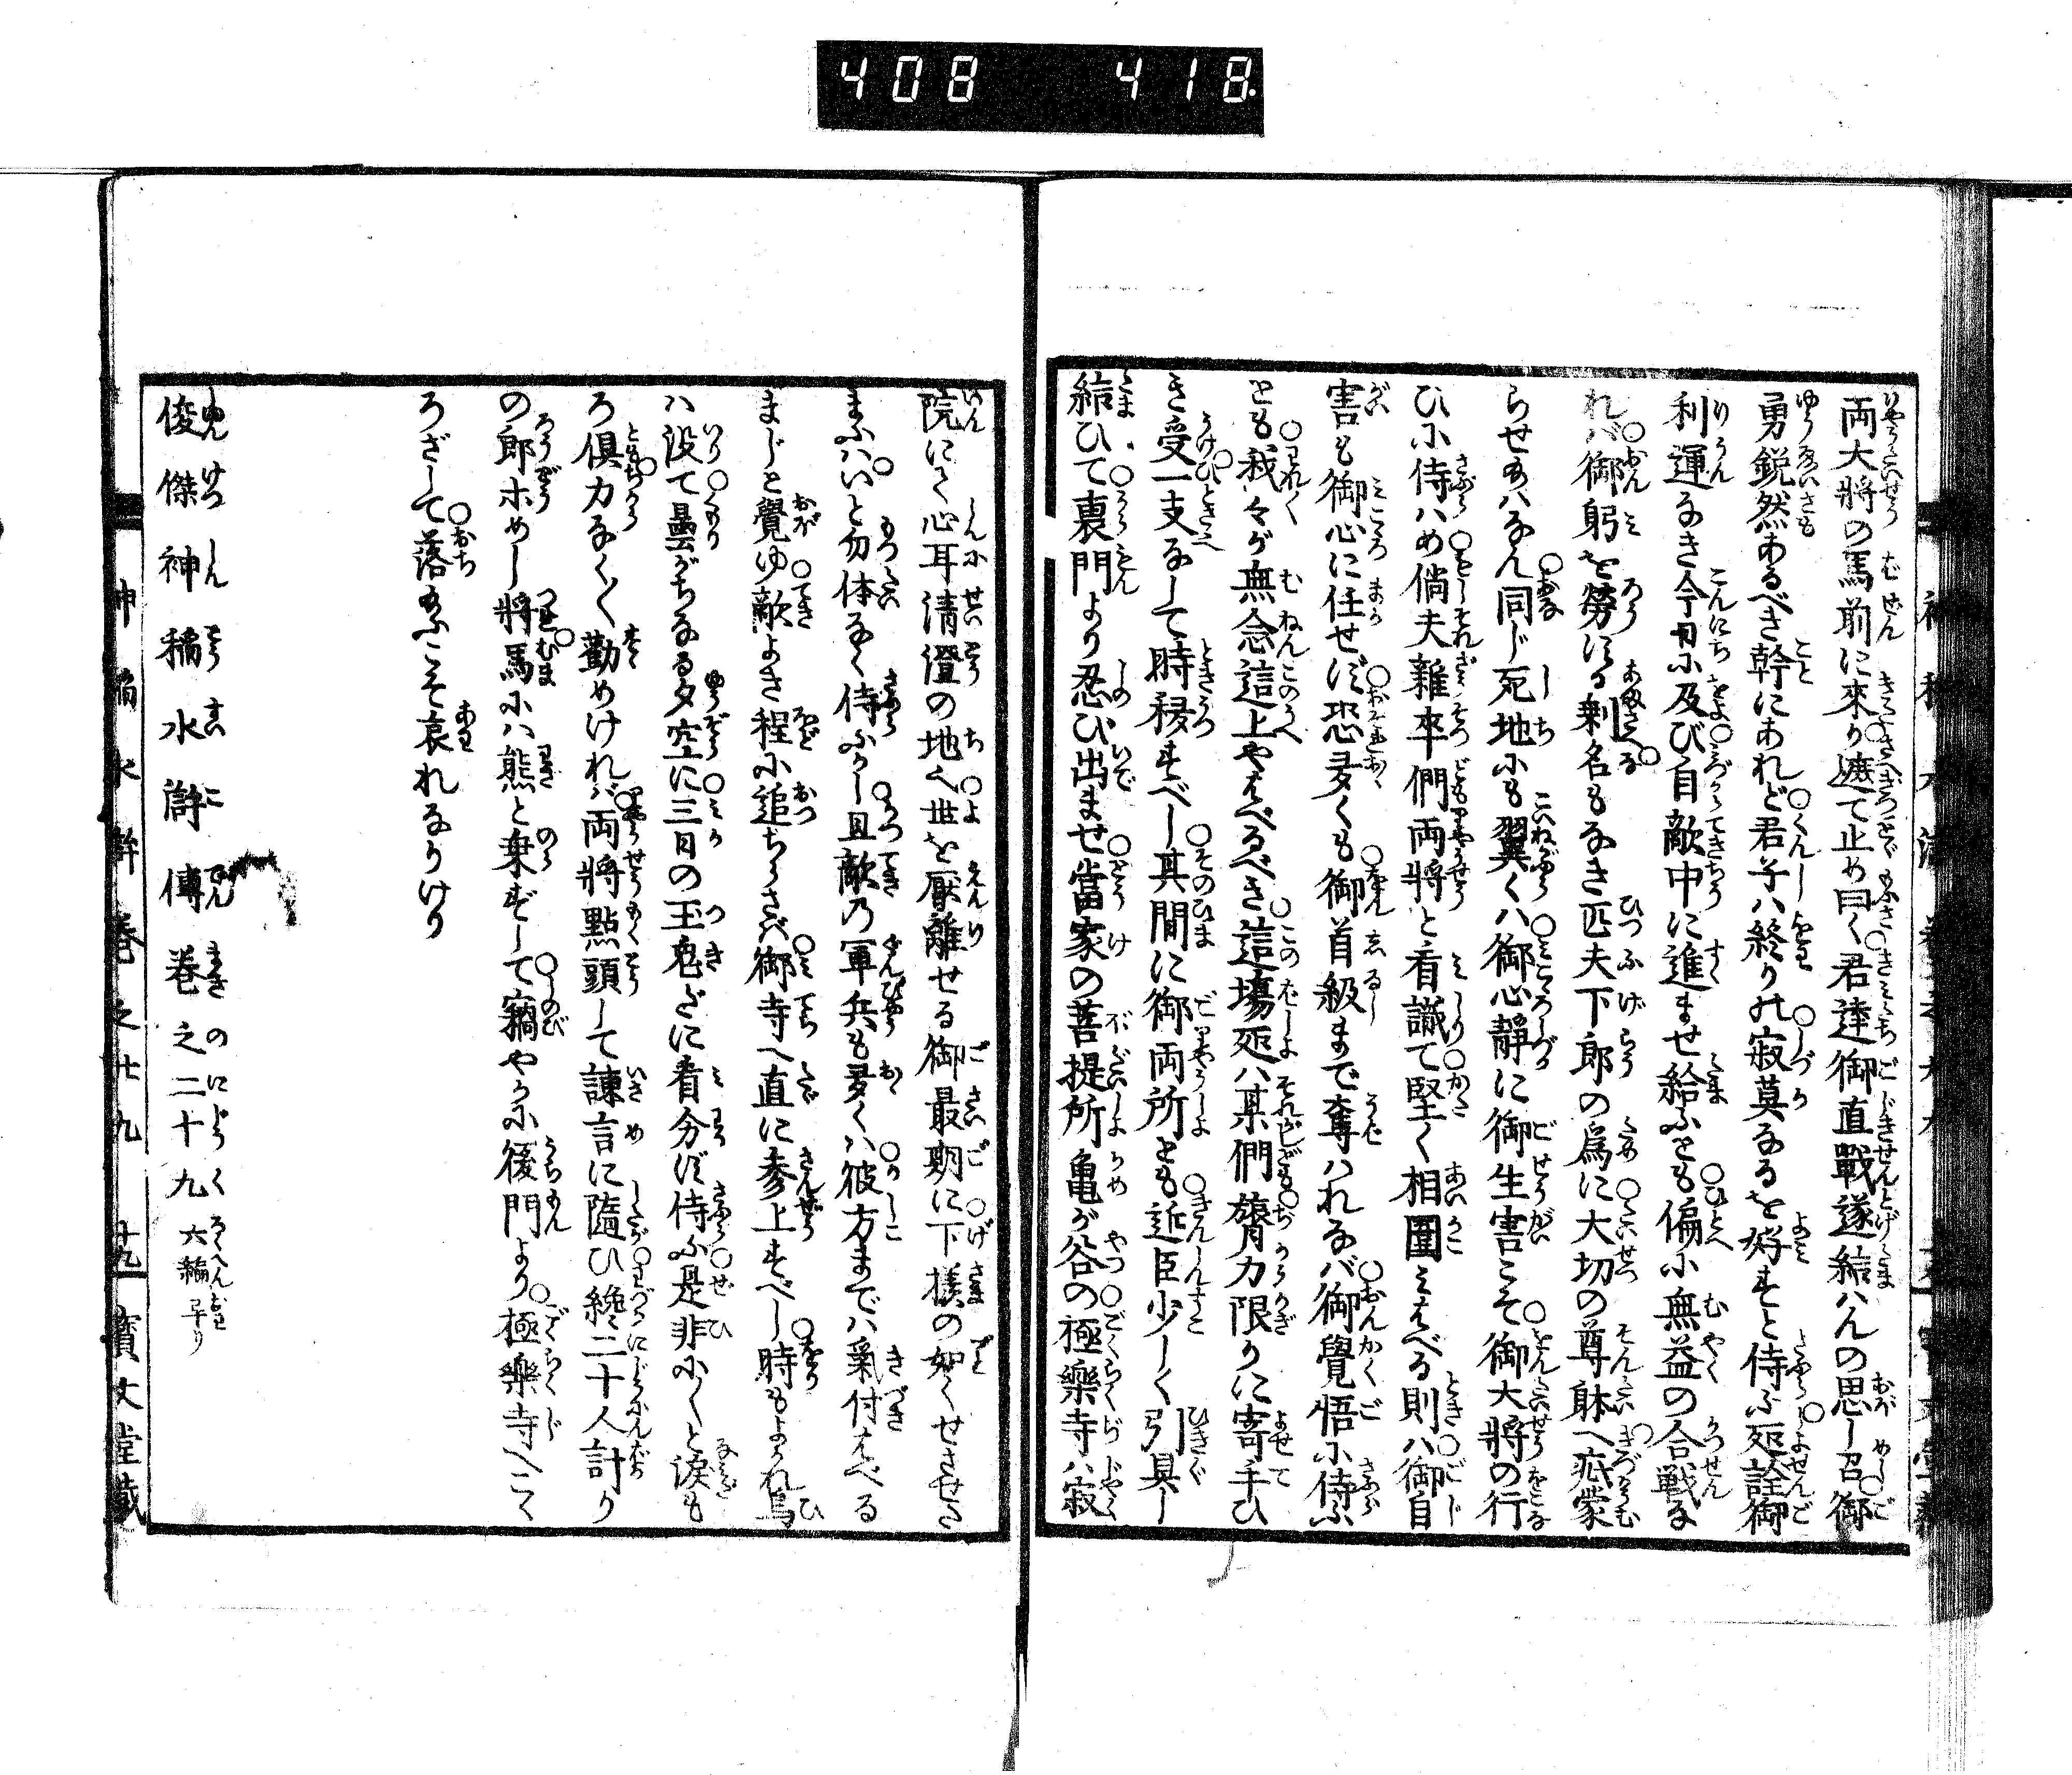 408 418.
両大將の馬前に來り遮て止め曰く君達御直戰遂給はんの思し召御
勇鋭然あるべき幹にあれど君子ハ終りの寂莫なるを好すと侍ふ処詮御
利運なき今日に及び自敵中に進ませ給ふとも偏に無益の合戦な
れバ御躬を勞し剰名もなき匹夫下郎の爲に大切の尊躰へ疵蒙
らせ給ハなん同じ死地にも翼くハ御心靜に御生害こそ御大將の行
ひに侍ハめ倘夫雜卒們両將と看識て堅く相圍みはべる則ハ御自
害も御心に任せず恐多くも御首級まで奪ハれなバ御覺悟に侍ふ
とも我々が無念這上やはべるべき這塲処ハ某們膂力限りに寄手ひ
き受一支なして時移すべし其間に御両所とも近臣少しく引具し
給ひて裏門より忍び出ませ當家の菩提所亀が谷の極樂寺ハ寂
院にて心耳清澄の地く世を厭離せる御最期に下樣の如くせさせた
まふハいと勿体なく侍ふかし且敵乃軍兵も多くハ彼方までハ氣付はべる
まじと覺ゆ敵よき程に追ちらさバ御寺へ直に參上すべし時もよかれ烏
ハ没て曇がちなる夕空に三日の玉兎だに看分ず侍ふ是非に〳〵と涙も
ろ倶力なく〳〵勸めけれバ両將點頭して諌言に隨ひ纔二十人計り
の郎木めし將馬にハ熊と乗ずして竊やかに後門より極樂寺へこゝ
ろざして落給ふこそ哀れなりけり
俊傑神稲水滸傳巻之二十九 六編早り
神稲水滸 巻之廿九 十九 寶文堂藏